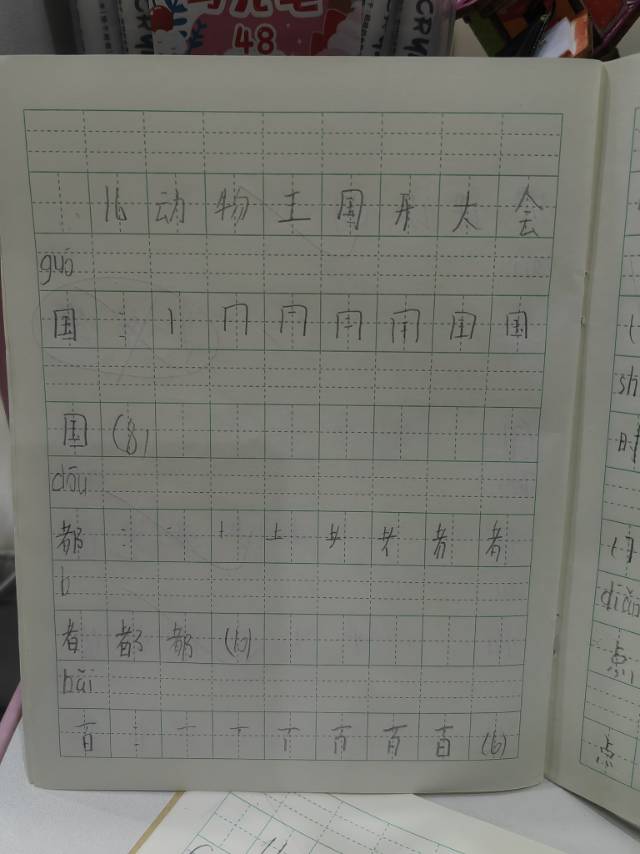 CRAY
48
16 动物王国开大会
guó
国 : 丨 冂 国
sh
时
国 (8)
dōu
都 : 一 十 土 耂 者 者
diǎn
b
者 都 都 (10)
点
bǎi
百 : 一 丆 百 百 百 (6)
点